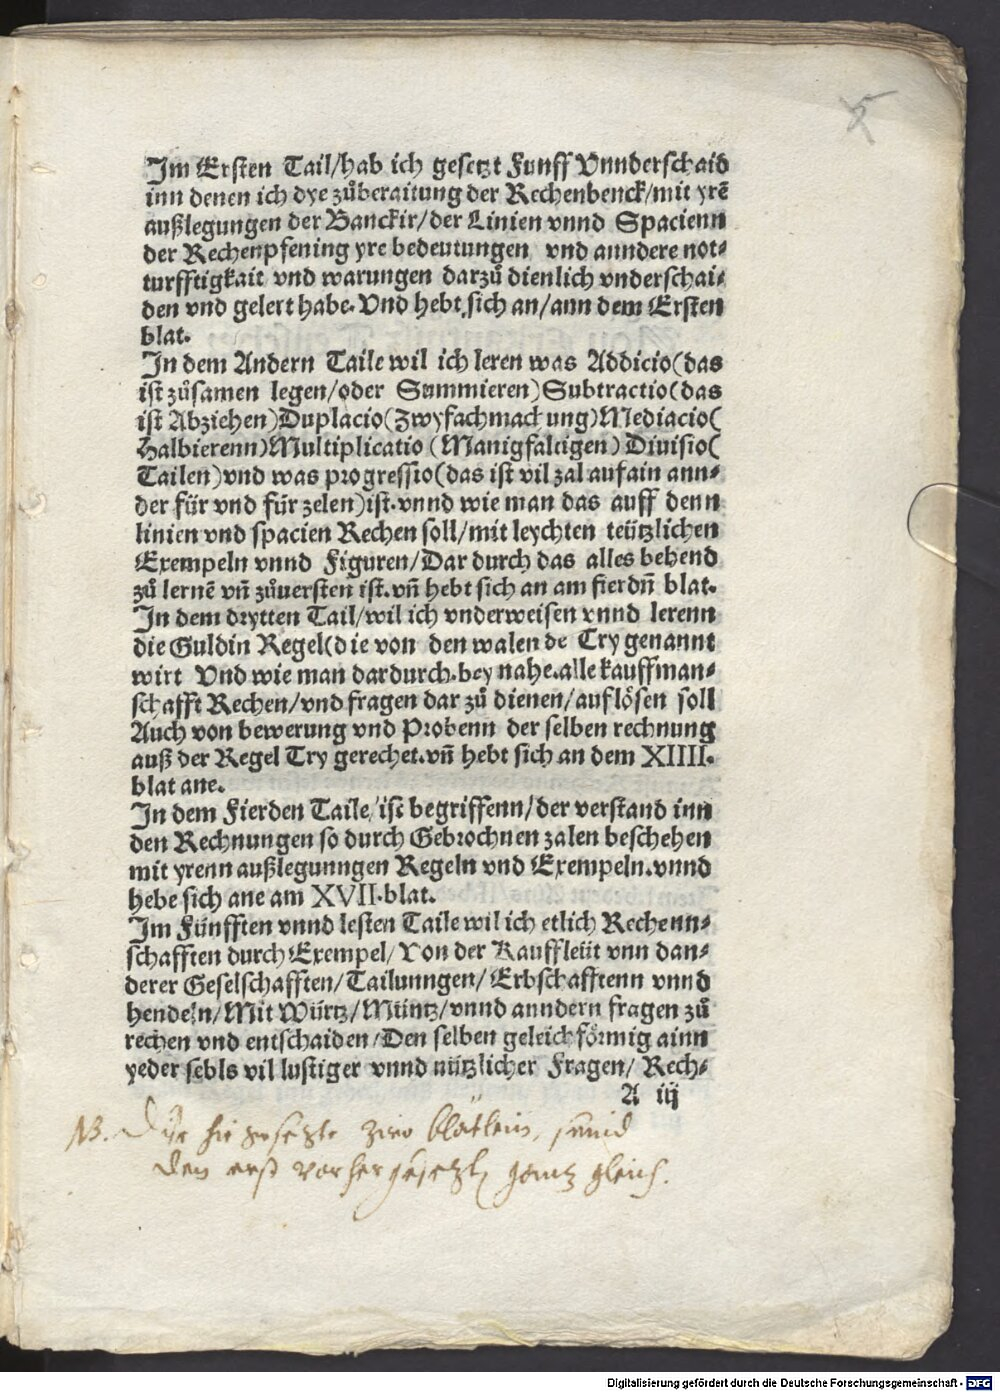 5
Im Ersten Tail/hab ich gesetzt Funff Vnnderschaid
inn denen ich dye zůberaitung der Rechenbenck/mit yrē
außlegungen der Banckir/der Linien vnnd Spacienn
der Rechenpfening yre bedeutungen vnd anndere not⸗
turfftigkait vnd warungen darzů dienlich vnderschai⸗
den vnd gelert habe. Vnd hebt sich an/ann dem Ersten
blat.
In dem Andern Taile wil ich leren was Addicio(das
ist zůsamen legen/oder Summieren)Subtractio(das
ist Abziehen)Duplacio(Zwyfachmachung)Mediacio(
Halbierenn)Multiplicatio (Manigfaltigen) Diuisio(
Tailen)vnd was progressio(das ist vil zal auf ain ann⸗
der für vnd für zelen)ist. vnnd wie man das auff denn
linien vnd spacien Rechen soll/mit leychten teützlichen
Exempeln vnnd Figuren/Dar durch das alles behend
zů lernē vñ zůuersten ist. vñ hebt sich an am fierdñ blat.
In dem drytten Tail/wil ich vnderweisen vnnd lerenn
die Guldin Regel(die von den walen de Try genannt
wirt Vnd wie man dardurch. bey nahe. alle kauffman⸗
schafft Rechen/vnd fragen dar zů dienen/auflösen soll
Auch von bewerung vnd Probenn der selben rechnung
auß der Regel Try gerechet. vñ hebt sich an dem XIIII.
blat ane.
In dem Fierden Taile/ist begriffenn/der verstand inn
den Rechnungen so durch Gebrochnen zalen beschehen
mit yrenn außlegunngen Regeln vnd Exempeln. vnnd
hebe sich ane am XVII. blat.
Im Fünfften vnnd lesten Taile wil ich etlich Rechenn⸗
schafften durch Exempel/ Von der Kauffleüt vnn dan⸗
derer Geselschafften/Tailunngen/Erbschafftenn vnnd
hendeln/Mit Würtz/Müntz/vnnd anndern fragen zů
rechen vnd entschaiden/Den selben geleichförmig ainn
yeder sebls vil lustiger vnnd nützlicher Fragen/ Rech⸗
A iij
NB. Dise hie zwo blätlein, seind
den erst vorher gesetzten gantz gleich.
Digitalisierung gefördert durch die Deutsche Forschungsgemeinschaft - DFG